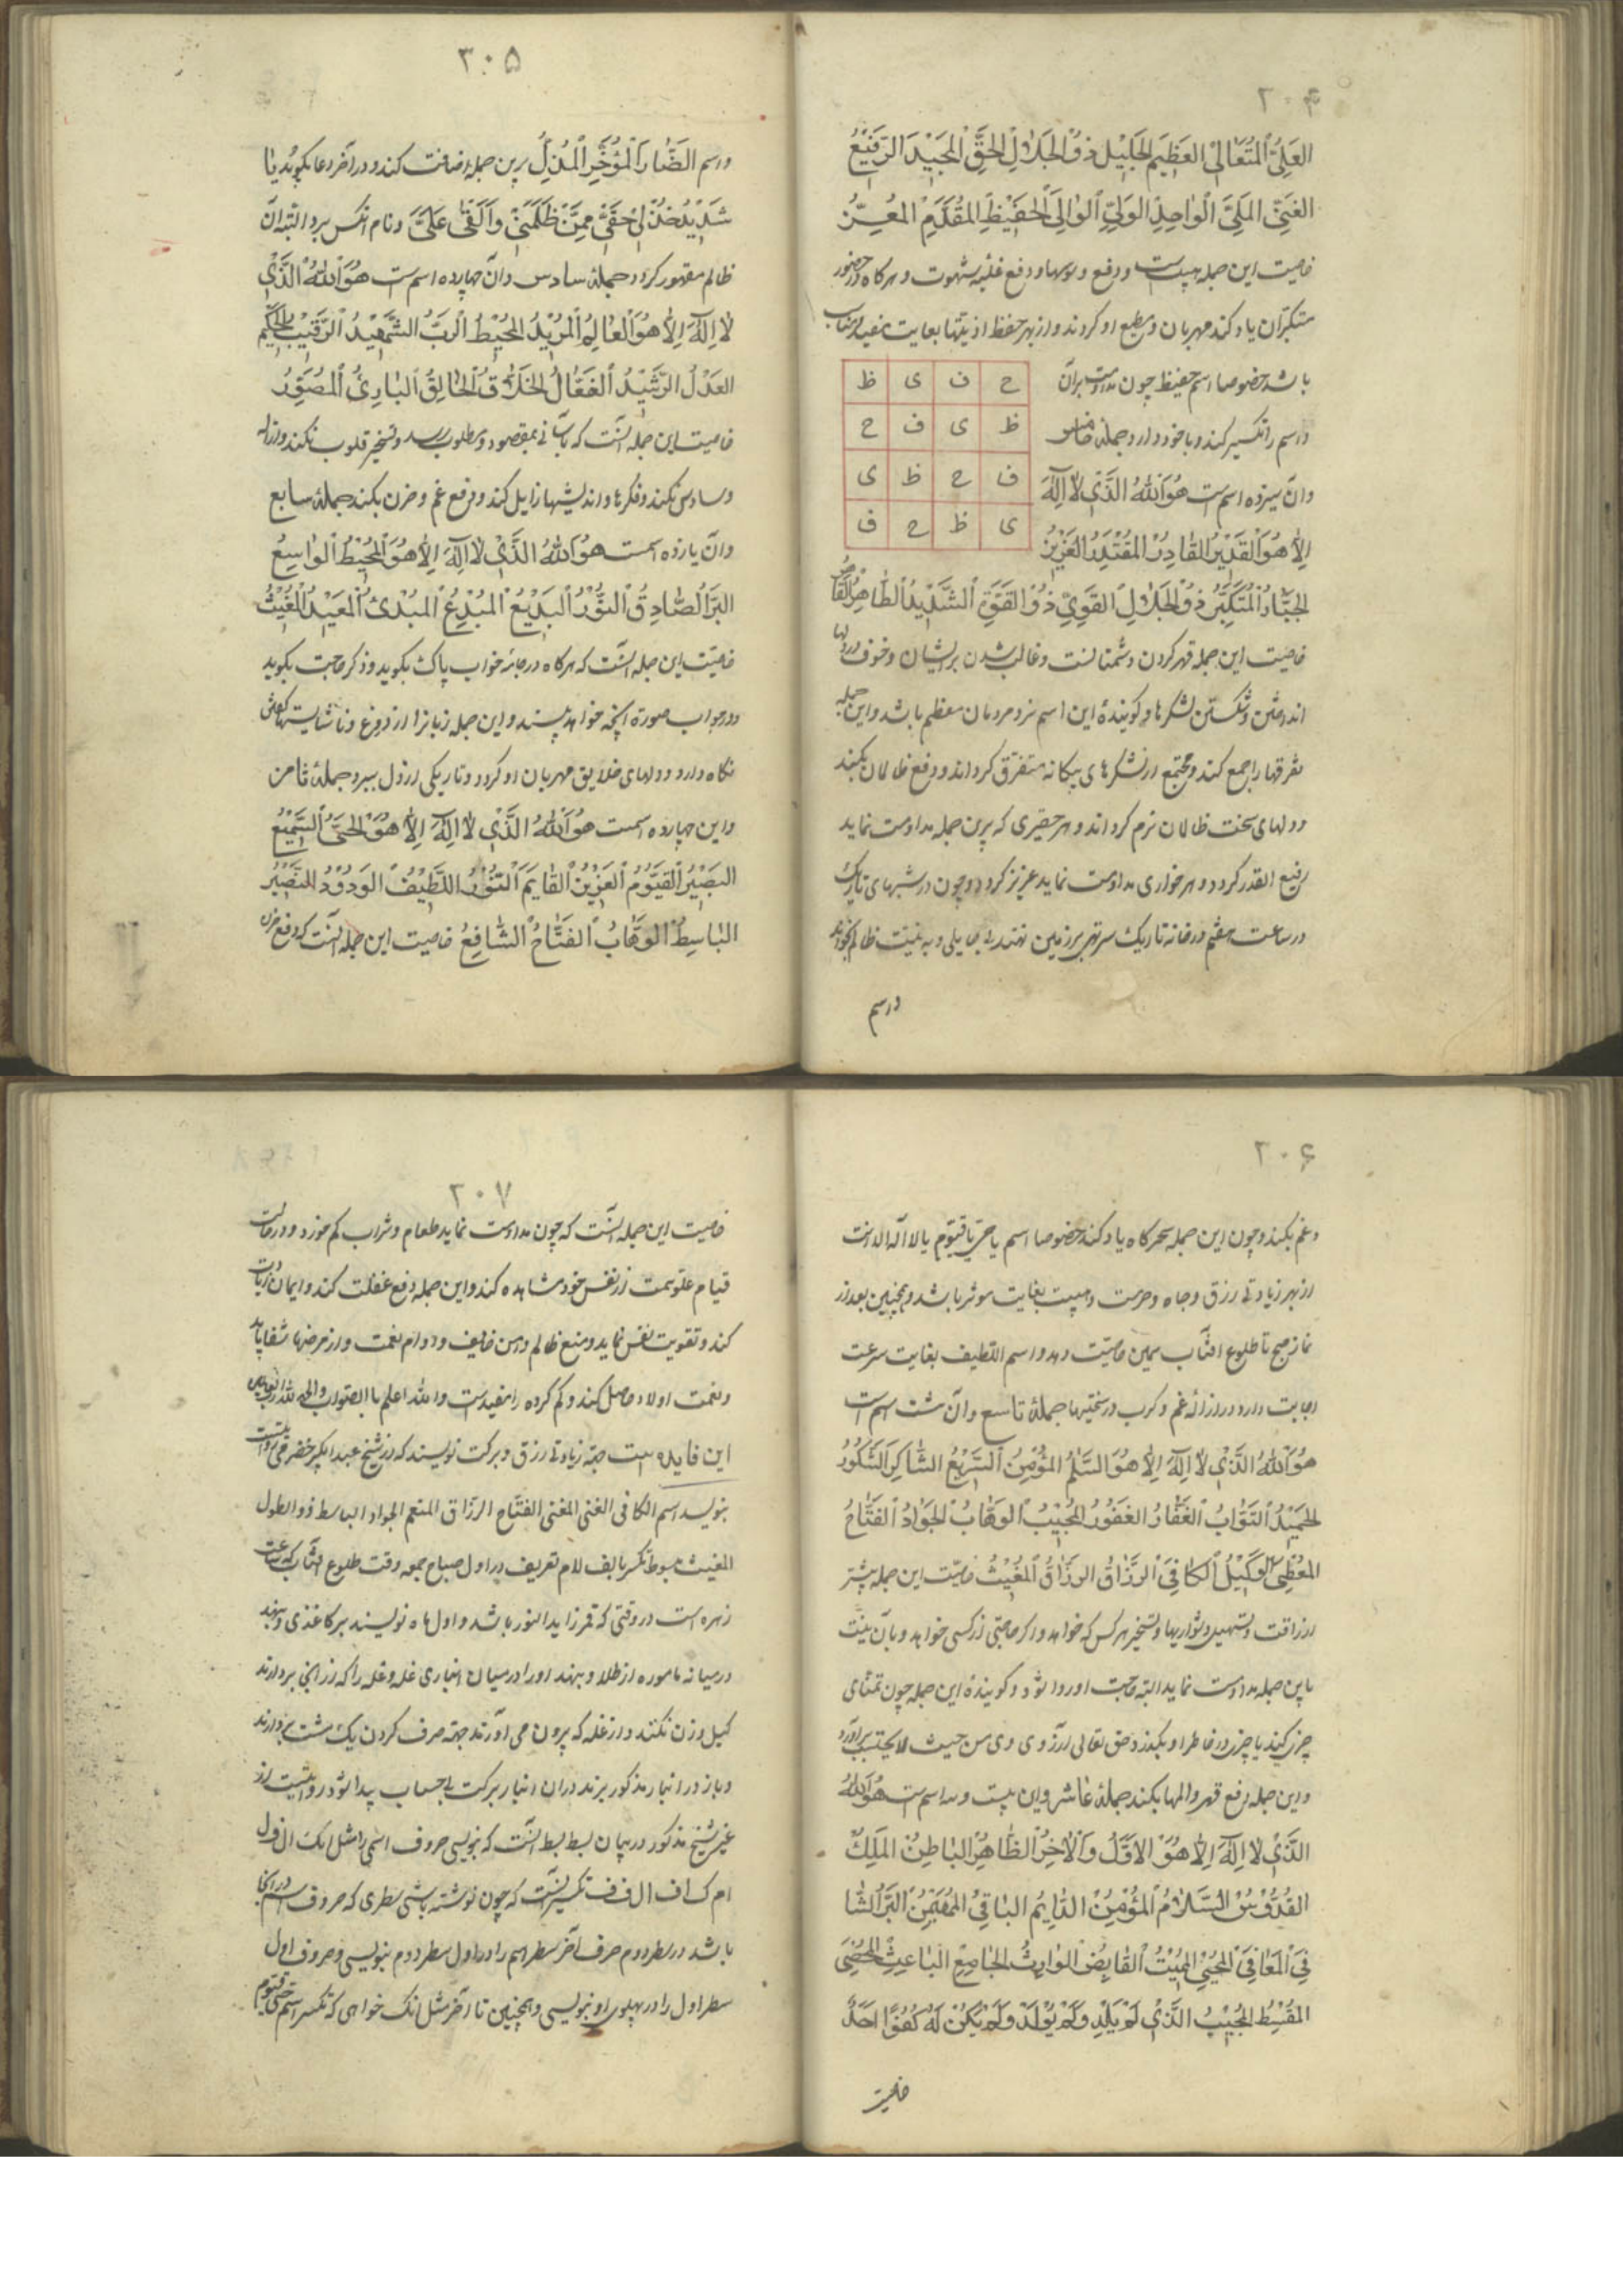 ۲۰۴
العَلِیُّ المُتَعَالِی العَظِیمِ الجَلِیلِ ذُو الجَلَالِ الحَقِّ المَجِیدِ الرَّفِیعُ
الغَنِیِّ المَلِیِّ الوَاحِدِ الوَلِیِّ الوَالِی الحَفِیظِ المُقَدَّمِ المُعِزُّ
خاصیت این جمله هیبت است و دفع وسوسها و دفع غلبه شهوت و هرکاه در حضور
متکبران یاد کند مهربان و مطیع او کردند و از بهر حفظ اذیتها بغایت مفید
باشد خصوصا اسم حفیظ چون مداومت بران
ح ف ی ظ
واسم را تکسیر کند و با خود دارد جملهٔ خامس
ظ ی ف ح
وآن سیزده اسم است هُوَ اللهُ الَّذِی لَا اِلٰهَ
ف ح ظ ی
اِلَّا هُوَ القَدِیرُ القَادِرُ المُقْتَدِرُ العَزِیزُ
ی ظ ح ف
الجَبَّارُ المُتَکَبِّرُ ذُو الجَلَالِ القَوِیِّ ذُو القُوَّةِ الشَّدِیدُ الطَّاهِرُ
خاصیت این جمله قهر کردن دشمنانست و غالب شدن برایشان و خوف در دلها
انداختن و شکستن لشکرها و کویندهٔ این اسم نزد مردمان معظم باشد و این جمله
تفرقها را جمع کند و مجتمع از لشکرهای بیکانه متفرق کرداند و دفع ظالمان بکند
و دلهای سخت ظالمان نرم کرداند و هر حقیری که برین جمله مداومت نماید
رفیع القدر کردد و هر خواری مداومت نماید عزیز کردد و چون در شبهای تاریک
در ساعت هفتم در خانه تاریک سر بر زمین نهند بی حایلی و به نیت ظالم بخواند
واسم
۳۰۵
واسم الضَّارَّ المُؤَخِّرِ المُذِلِّ برین جمله اضافت کند و در آخر دعا بکوید یَا
شَدِیدُ خُذْ لِی حَقِّی مِمَّنْ ظَلَمَنِی وَ عَلَیَّ و نام انکس برد البته آن
ظالم مقهور کردد جملهٔ سادس و آن چهارده اسم است هُوَ اللهُ الَّذِی
لَا اِلٰهَ اِلَّا هُوَ العَالِمُ المُرِیدُ المُحِیطُ الرَّبُّ الشَّهِیدُ الرَّقِیبُ الحَکِیمُ
العَدْلُ الرَّشِیدُ الفَعَّالُ الخَلَّاقُ الخَالِقُ البَارِئُ المُصَوِّرُ
خاصیت این جمله آنست که بآسانی بمقصود و مطلوب رسد و تسخیر قلوب بکند و ازاله
وساوس بکند و فکرها و اندیشها زایل کند و دفع غم و حزن بکند جملهٔ سابع
وآن یازده اسمست هُوَ اللهُ الَّذِی لَا اِلٰهَ اِلَّا هُوَ المُحِیطُ الوَاسِعُ
البَرُّ الصَّادِقُ النُّورُ البَدِیعُ المُبْدِعُ المُبْدِئُ المُعِیدُ المُغِیثُ
خاصیت این جمله آنست که هرکاه در جامهٔ خواب پاک بکوید و ذکر حاجت بکوید
در جواب صورة آنچه خواهد بیند و این جمله زبان را از دروغ و ناشایستها
نکاه دارد و دلهای خلایق مهربان او کردد و تاریکی از دل ببرد جملهٔ ثامن
واین چهارده اسمست هُوَ اللهُ الَّذِی لَا اِلٰهَ اِلَّا هُوَ الحَیُّ السَّمِیعُ
البَصِیرُ القَیُّومُ العَزِیزُ القَایِمُ النُّورُ اللَّطِیفُ الوَدُودُ النَّصِیرُ
البَاسِطُ الوَهَّابُ الفَتَّاحُ الشَّافِعُ خاصیت این جمله آنست که دفع حزن
۲۰۶
و غم بکند و چون این جمله سحرکاه یاد کند خصوصا اسم یا حی یا قیوم یا لا اله الا انت
از بهر زیادتی رزق و جاه و حرمت و هیبت بغایت موثر باشد و همچنین بعد از
نماز صبح تا طلوع افتاب همین خاصیت دهد و اسم اللطیف بغایت سرعت
اجابت دارد در ازالهٔ غم و کرب در سختیها جملهٔ تاسع وآن شت اسم است
هُوَ اللهُ الَّذِی لَا اِلٰهَ اِلَّا هُوَ السَّلٰمُ المُؤْمِنُ السَّرِیعُ الشَّاکِرُ الشَّکُورُ
الحَمِیدُ التَّوَّابُ الغَفَّارُ الغَفُورُ المُجِیبُ الوَهَّابُ الجَوَادُ الفَتَّاحُ
المُعْطِی الوَکِیلُ الکَافِی الرَّزَّاقُ المُغِیثُ خاصیت این جمله بیشتر
ارزاقست و تسهیل دشواریها و تسخیر هرکس که خواهد و اکر حاجتی از کسی خواهد و بآن نیت
باین جمله مداومت نماید البته حاجت او روا شود و کویندهٔ این جمله چون تمنای
چیزی کند یا چیزی در خاطر او بکذرد حق تعالی آرزوی وی من حیث لا یحتسب برآورد
واین جمله دفع قهر و المها بکند جملهٔ عاشر و این بیست و سه اسم است هُوَ اللهُ
الَّذِی لَا اِلٰهَ اِلَّا هُوَ الاَوَّلُ وَالآخِرُ الظَّاهِرُ البَاطِنُ المَلِکُ
القُدُّوسُ السَّلَامُ المُؤْمِنُ الدَّایِمُ البَاقِی المُهَیْمِنُ البَرُّ الشَّا
فِی المُعَافِی المُحْیِی المُمِیتُ القَابِضُ الوَارِثُ الجَامِعُ البَاعِثُ المُحْصِی
المُقْسِطُ المُجِیبُ الَّذِی لَمْ یَلِدْ وَلَمْ یُولَدْ وَلَمْ یَکُنْ لَهُ کُفُوًا اَحَدٌ
خاصیت
۲۰۷
خاصیت این جمله آنست که چون مداومت نماید طعام و شراب کم خورد و در حالت
قیام علو همت از نفس خود مشاهده کند و این جمله دفع غفلت کند و ایمان زیادت
کند و تقویت نفس نماید و منع ظالم و امن خایف و دوام نعمت و از مرضها شفا یابد
ونعمت اولاد حاصل کند و کم کرده را مفیدست والله اعلم بالصواب والحمد لله رب العالمین
این فایده ایست جهة زیادتی رزق و برکت نویسند که از شیخ
بنویسد اسم الکافی الغنی المغنی الفتاح الرزاق المنعم الجواد الباسط ذو الطول
المغیث مبسوط تکسیر با الف لام تعریف در اول صباح جمعه وقت طلوع آفتاب که ساعت
زهره است در وقتی که قمر زاید النور باشد و اول ماه نویسند بر کاغذی و بنهند
در میانه ماسوره از طلا و بنهند او را در میان انباری غله و غله را که از انجا بردارند
کیل و وزن نکنند و از غله که بیرون می آورند جهة صرف کردن یک مشت بردارند
و باز در انبار مذکور ریزند در آن انبار برکت بی حساب پیدا شود
غیر شیخ مذکور در بیان بسط بسط آنست که بنویسی حروف اسمی را مثل انک ال ف ل
ام ک اف ال ف ف تکسیر آنست که چون نوشته باشی سطری که حروف اسم در انجا
باشد در سطر دوم حرف آخر سطر اسم را در اول سطر دوم بنویسی و حروف اول
سطر اول را در پهلوی او بنویسی و همچنین تا آخر مثل انک خواهی که تکسیر اسم حی قیوم